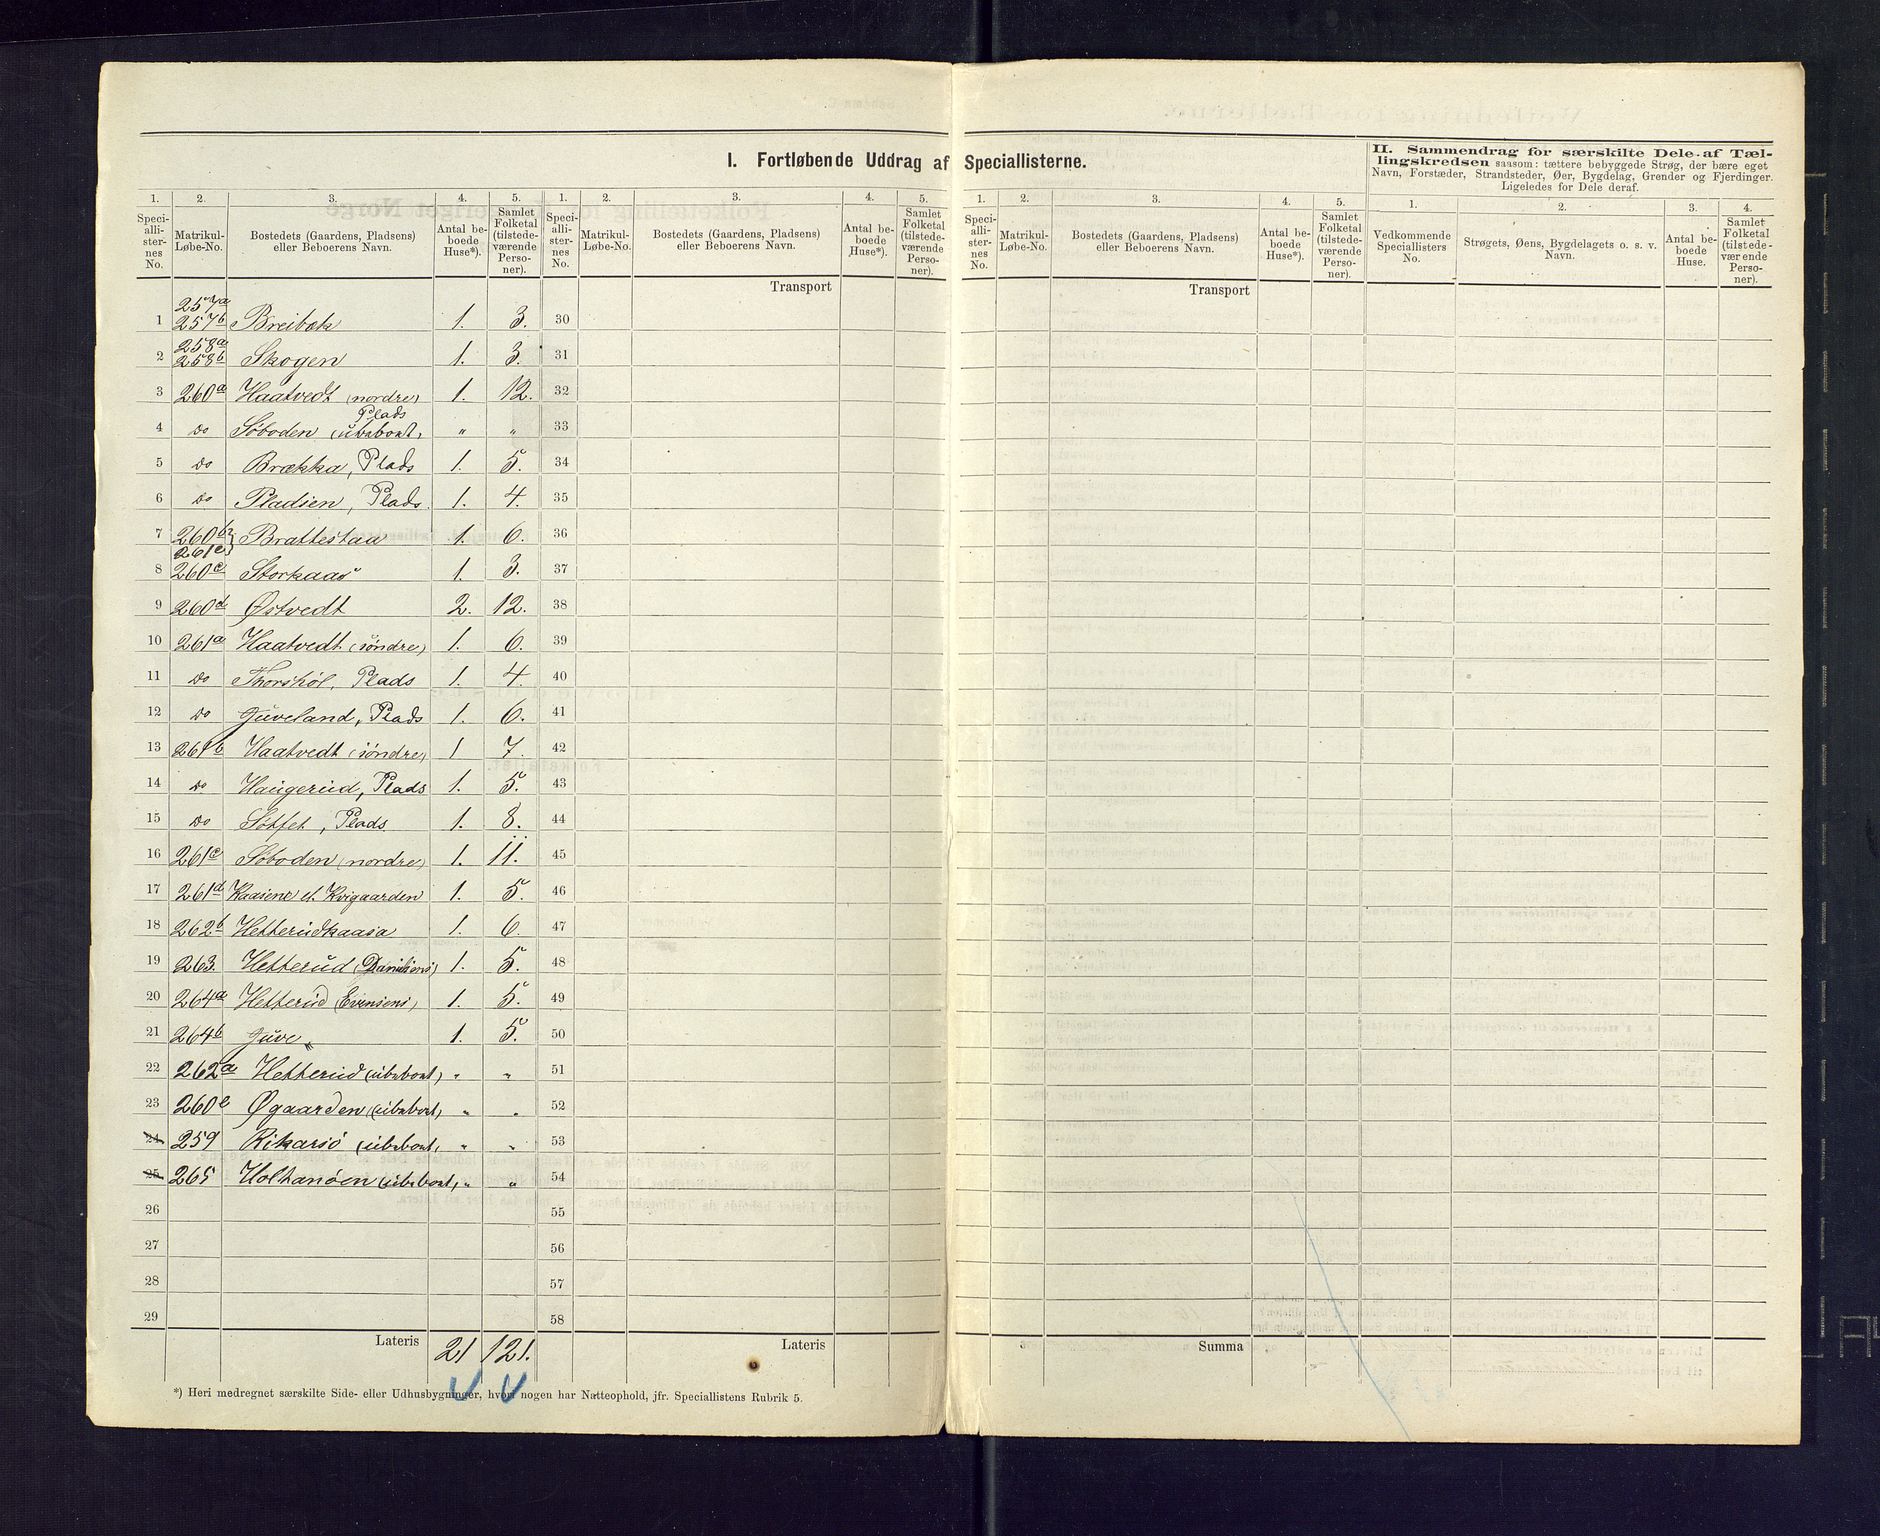 I. Fortløbende Uddrag af Speciallisterne.
II. Sammendrag for særskilte Dele af Tællingskredsen saasom: tættere bebyggede Strøg, der bære eget
Navn, Forstæder, Strandsteder, Øer, Bygdelag, Grender og Fjerdinger.
Ligeledes for Dele deraf.
1. 2. 3. 4. 5. 1. 2. 3. 4. 5. 1. 2. 3. 4. 5. 1. 2. 3. 4.
Speciallisternes No. Matrikul-Løbe-No. Bostedets (Gaardens, Pladsens) eller Beboerens Navn. Antal beboede Huse*). Samlet Folketal (tilstedeværende Personer).
Speciallisternes No. Matrikul-Løbe-No. Bostedets (Gaardens, Pladsens) eller Beboerens Navn. Antal beboede Huse*). Samlet Folketal (tilstedeværende Personer).
Speciallisternes No. Matrikul-Løbe-No. Bostedets (Gaardens, Pladsens) eller Beboerens Navn. Antal beboede Huse*). Samlet Folketal (tilstedeværende Personer).
Vedkommende Speciallisters No. Strøgets, Øens, Bygdelagets o. s. v. Navn. Antal beboede Huse. Samlet Folketal (tilstedeværende Personer).
Transport Transport
257a
1 257b Breibæk 1. 3. 30
258a
2 258b Skogen 1. 3. 31
3 260a Haatvedt (nordre) 1. 12. 32
Plads
4 Do Søboden (ubeboet) " " 33
5 Do Brækka, Plads 1. 5. 34
6 Do Pladsen, Plads 1. 4. 35
7 260b Brattestaa 1. 6. 36
261e
8 260c Storkaas 1. 3. 37
9 260d Østvedt 2. 12. 38
10 261a Haatvedt (søndre) 1. 6. 39
11 Do Thorshol, Plads 1. 4. 40
12 Do Juveland, Plads 1. 6. 41
13 261b Haatvedt (søndre) 1 7. 42
14 Do Haugerud, Plads 1. 5. 43
15 Do Søttet, Plads 1. 8. 44
16 261c Søboden (nordre) 1. 11. 45
17 261d Kaasene el. Kvigaarden 1. 5. 46
18 262b Hetterudkaasa 1. 6. 47
19 263. Hetterud (Danielsens) 1. 5. 48
20 264a Hetterud (Evensens) 1. 5. 49
21 264b Juve 1. 5. 50
22 262a Hetterud (ubeboet) " " 51
23 260e Øgaarden (ubeboet) " " 52
24 259 Rikarsø (ubeboet) " " 53
25 265 Holtanøen (ubeboet) " " 54
26 55
27 56
28 57
29 58
Lateris 21 121. Lateris Summa
*) Heri medregnet særskilte Side- eller Udhusbygninger, hvori nogen har Natteophold, jfr. Speciallistens Rubrik 5.